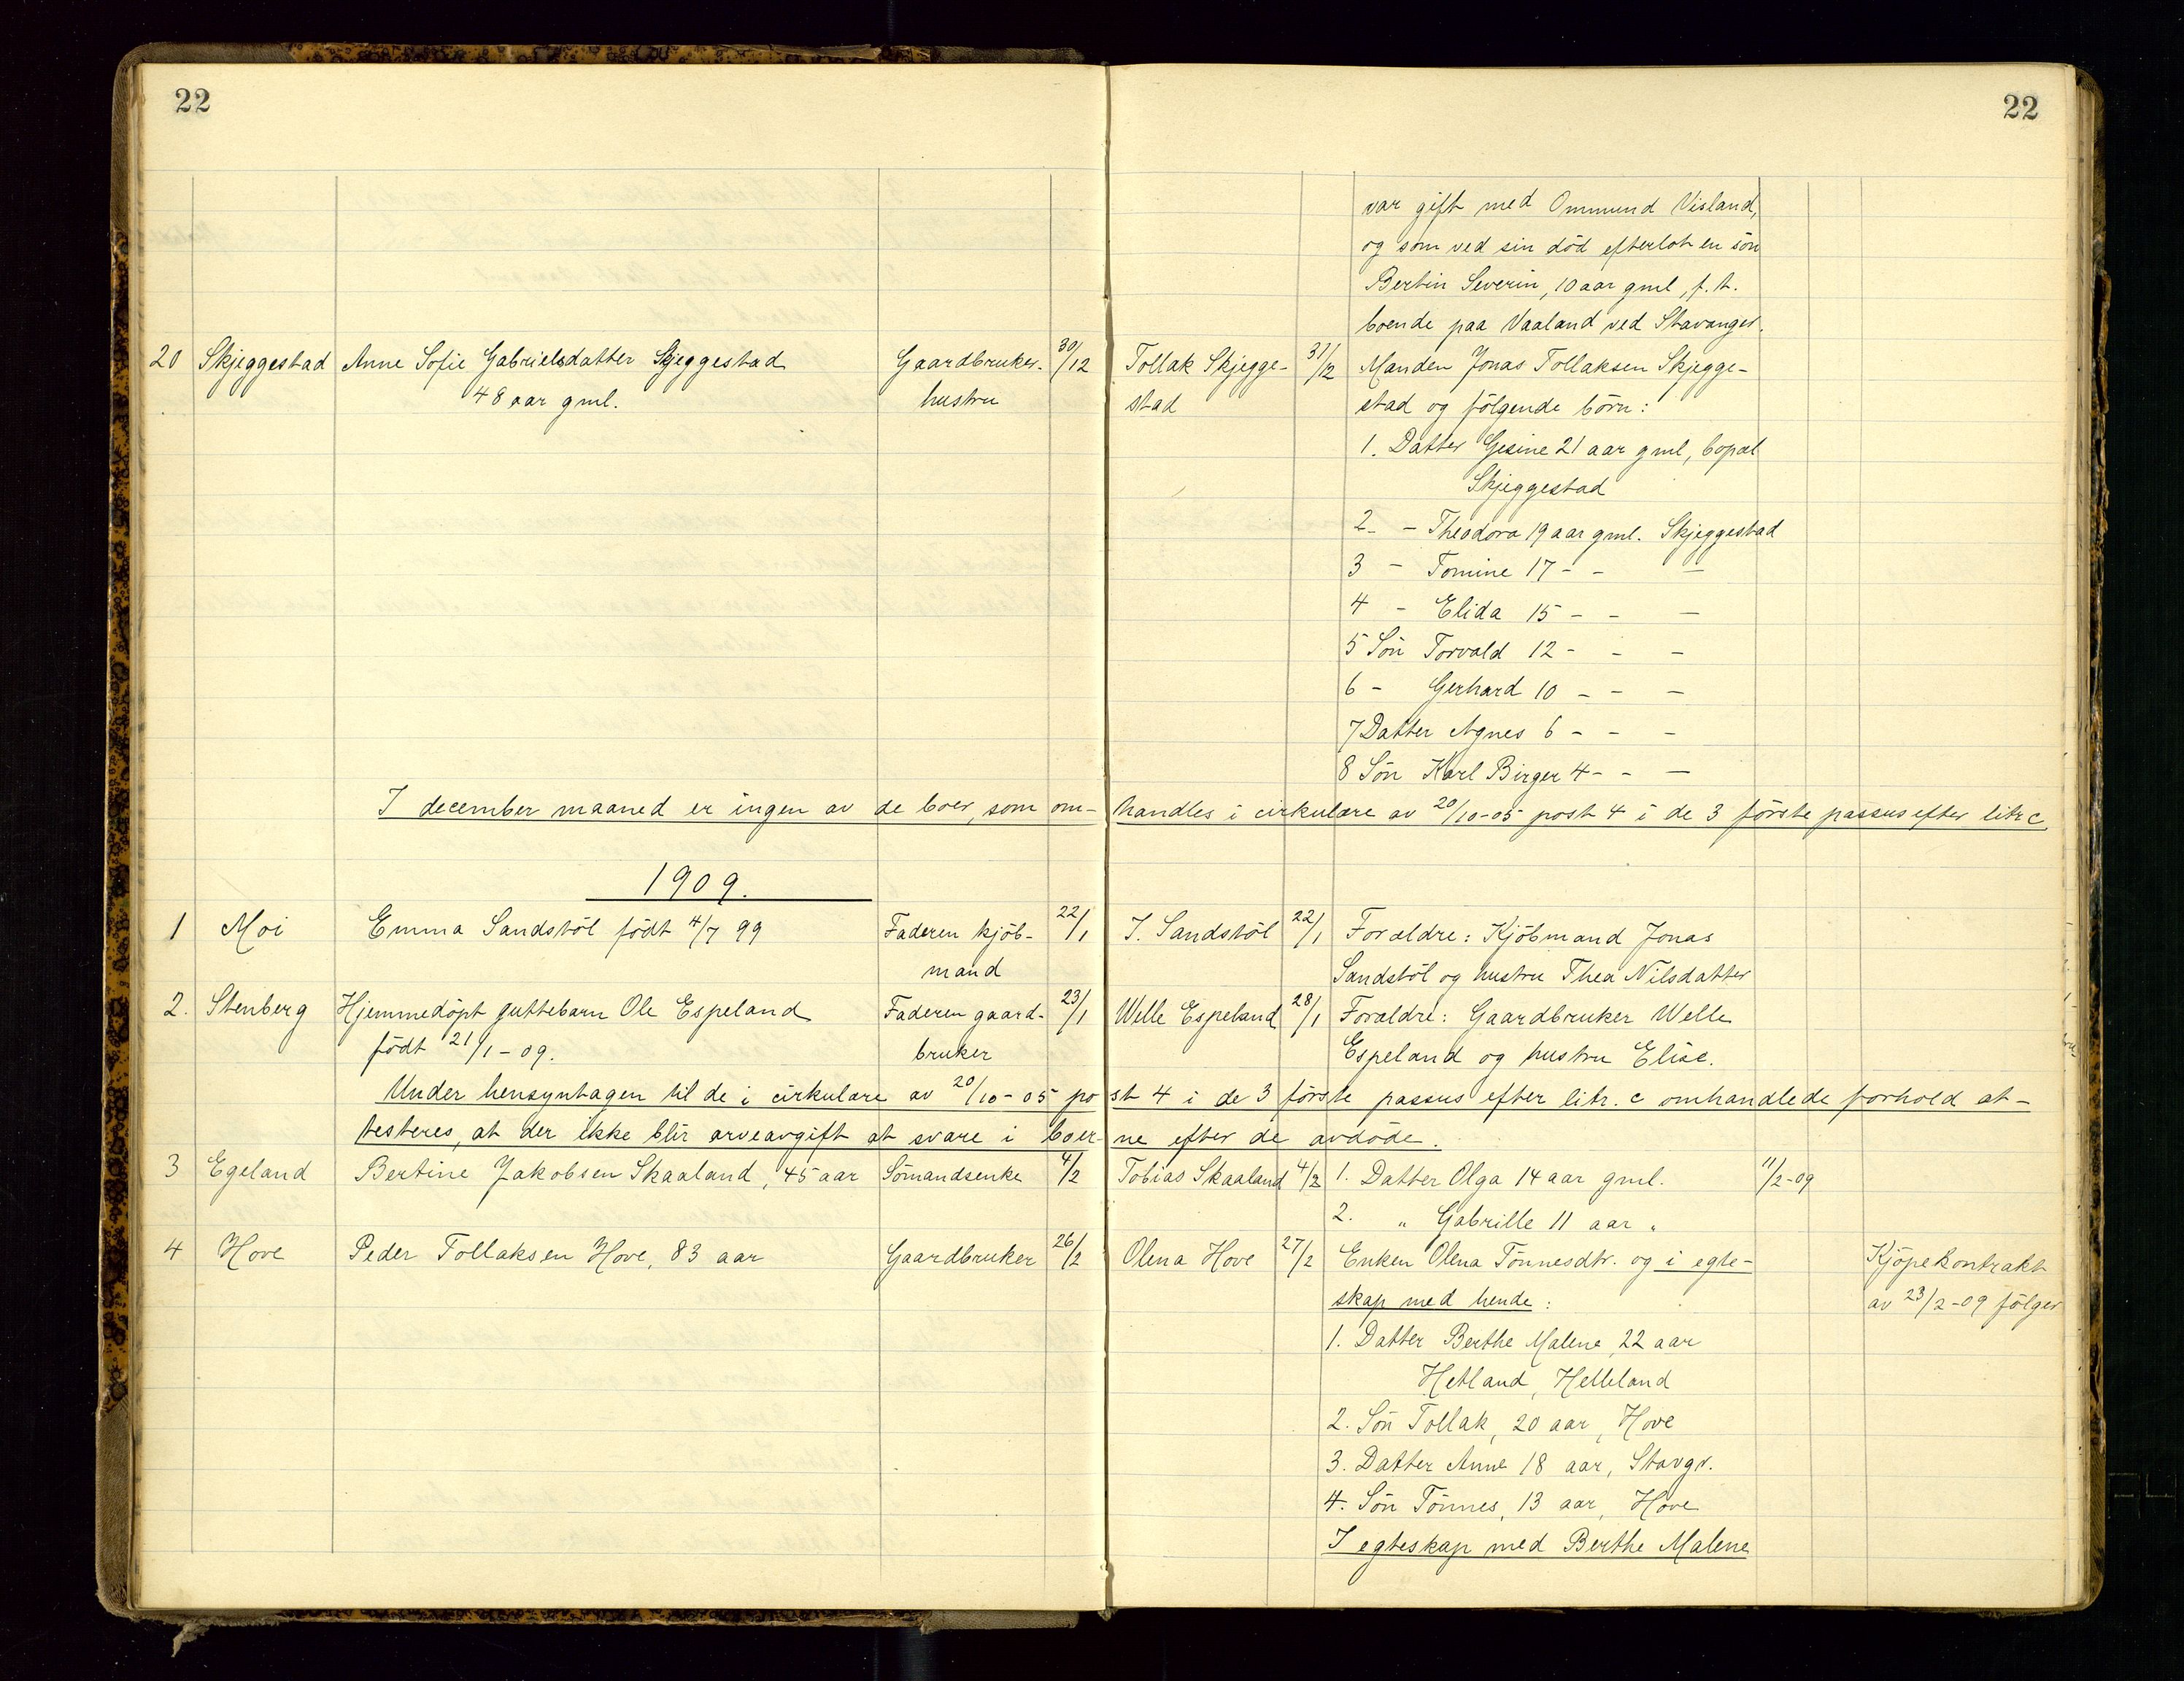 22
22
var gift med Ommund Visland,
og som ved sin död efterlot en sön
Bertin Severin, 10 aar gml, f.t.
boende paa Vaaland ved Stavanger.
20 Skjeggestad Anne Sofie Gabrielsdatter Skjeggestad Gaardbruker- 30/12 Tollak Skjegge- 31/12 Manden Jonas Tollaksen Skjegge-
48 aar gml. hustru stad stad og fölgende börn:
1. Datter Gesine 21 aar gml, bopæl
Skjeggestad
2 - Theodora 19 aar gml. Skjeggestad
3 - Tomine 17 - - -
4 - Elida 15 - - -
5 Sön Torvald 12 - - -
6 - Gerhard 10 - - -
7 Datter Agnes 6 - - -
8 Sön Karl Birger 4 - - -
I december maaned er ingen av de boer, som om- handles i cirkulære av 20/10-05 post 4 i de 3 förste passus efter litr c
1909.
1 Moi Emma Sandstöl födt 4/7 99 Faderen kjöb- 22/1 J. Sandstöl 22/1 Forældre: Kjöbmand Jonas
mand Sandstöl og hustru Thea Nilsdatter
2. Stenberg Hjemmedöpt guttebarn Ole Espeland Faderen gaard- 23/1 Welle Espeland 28/1 Forældre: Gaardbruker Welle
födt 21/1-09. bruker Espeland og hustru Elise.
Under hensyntagen til de i cirkulære av 20/10-05 post 4 i de 3 förste passus efter litr. c omhandlede forhold at-
testeres, at der ikke blir arveavgift at svare i boer- ne efter de avdöde.
3 Egeland Bertine Jakobsen Skaaland, 45 aar Sömandsenke 4/2 Tobias Skaaland 4/2 1. Datter Olga 14 aar gml. 11/2-09
2. " Gabrille 11 aar "
4 Hove Peder Tollaksen Hove, 83 aar Gaardbruker 26/2 Olena Hove 27/2 Enken Olena Tönnesdtr. og i egte- Kjöpekontrakt
skap med hende: av 23/2-09 fölger
1. Datter Berthe Malene, 22 aar
Hetland, Helleland
2. Sön Tollak, 20 aar, Hove
3. Datter Anne 18 aar, Stavgr.
4. Sön Tönnes, 13 aar, Hove
I egteskap med Berthe Malene